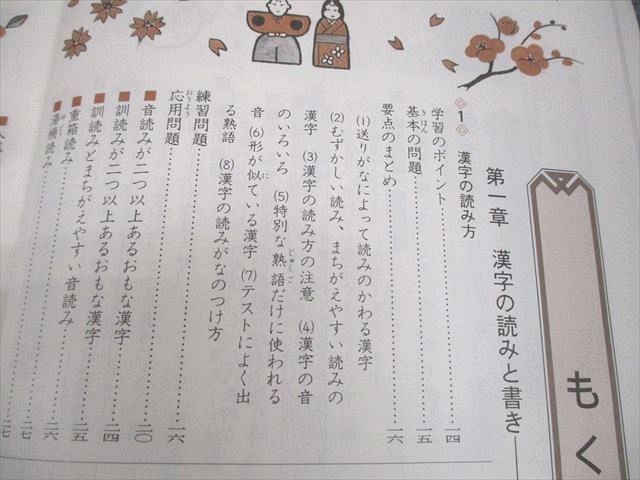 もく
第一章 漢字の読みと書き
1 漢字の読み方
学習のポイント………一四
基本の問題………一五
きほん
要点のまとめ………一六
(1)送りがなによって読みのかわる漢字
(2)むずかしい読み、まちがえやすい読みの
漢字 (3)漢字の読み方の注意 (4)漢字の音
のいろいろ (5)特別な熟語だけに使われる
じゅくご
音 (6)形が似ている漢字 (7)テストによく出
に
る熟語 (8)漢字の読みがなのつけ方
練習問題………一六
応用問題
おうよう
■音読みが二つ以上あるおもな漢字………二〇
■訓読みが二つ以上あるおもな漢字………二四
■訓読みとまちがえやすい音読み………二五
■重箱読み………二六
■湯桶読み………二七
二七